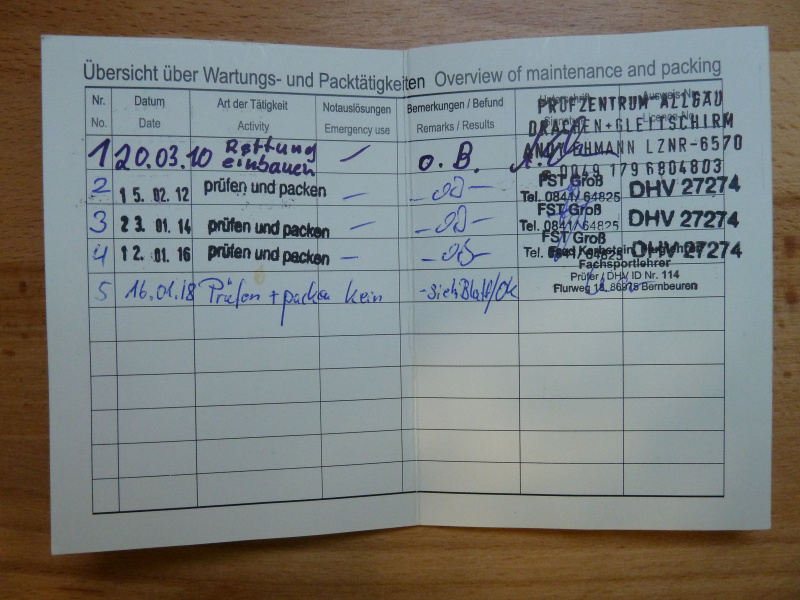 Übersicht über Wartungs- und Packtätigkeiten Overview of maintenance and packing
Nr. Datum Art der Tätigkeit Notauslösungen Bemerkungen / Befund
No. Date Activity Emergency use Remarks / Results
PRÜFZENTRUM ALLGÄU
DRACHEN+GLEITSCHIRM
LZNR-6570
0049 179 6804803
1 20.03.10 Rettung einbauen – o.B.
2 15.02.12 prüfen und packen –
FST Groß DHV 27274
Tel. 0841/ 64825
3 23.01.14 prüfen und packen –
FST Groß DHV 27274
Tel. 0841/ 64825
4 12.01.16 prüfen und packen –
FST Groß DHV 27274
Tel. 0841/ 64825
5 16.01.18 Prüfen + packen kein
Fachsportlehrer
Prüfer / DHV ID Nr. 114
Flurweg 18, 86975 Bernbeuren